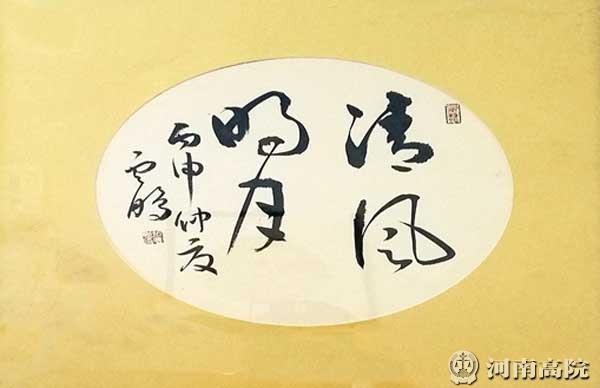 清风
明月
丙申仲夏
云鹏
河南高院